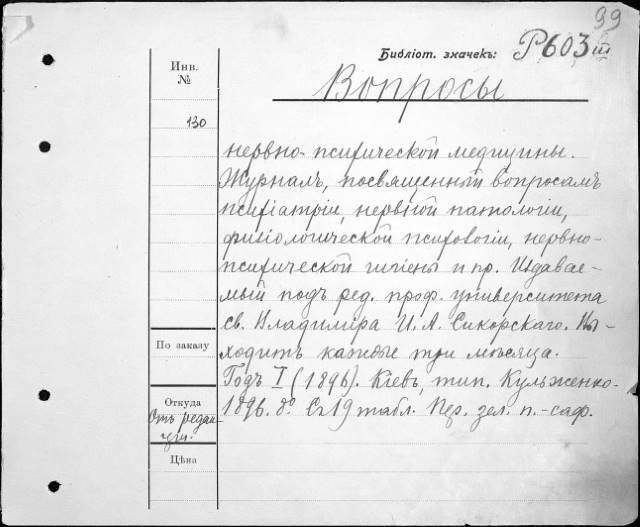 99
Библіот. значекъ: P603 III
Инв.
№
130
Вопросы
нервно-психической медицины.
Журналъ, посвященный вопросамъ
психіатріи, нервной патологіи,
физіологической психологіи, нервно-
психической гигіены и пр. Издавае-
мый подъ ред. проф. университета
св. Владиміра И. А. Сикорскаго. Вы-
ходитъ каждые три мѣсяца.
Годъ I (1896). Кіевъ, тип. Кульженко.
1896. 8° Съ 19 табл. Пер. зел. п.-саф.
По заказу
Откуда
Отъ редак-
ціи.
Цѣна